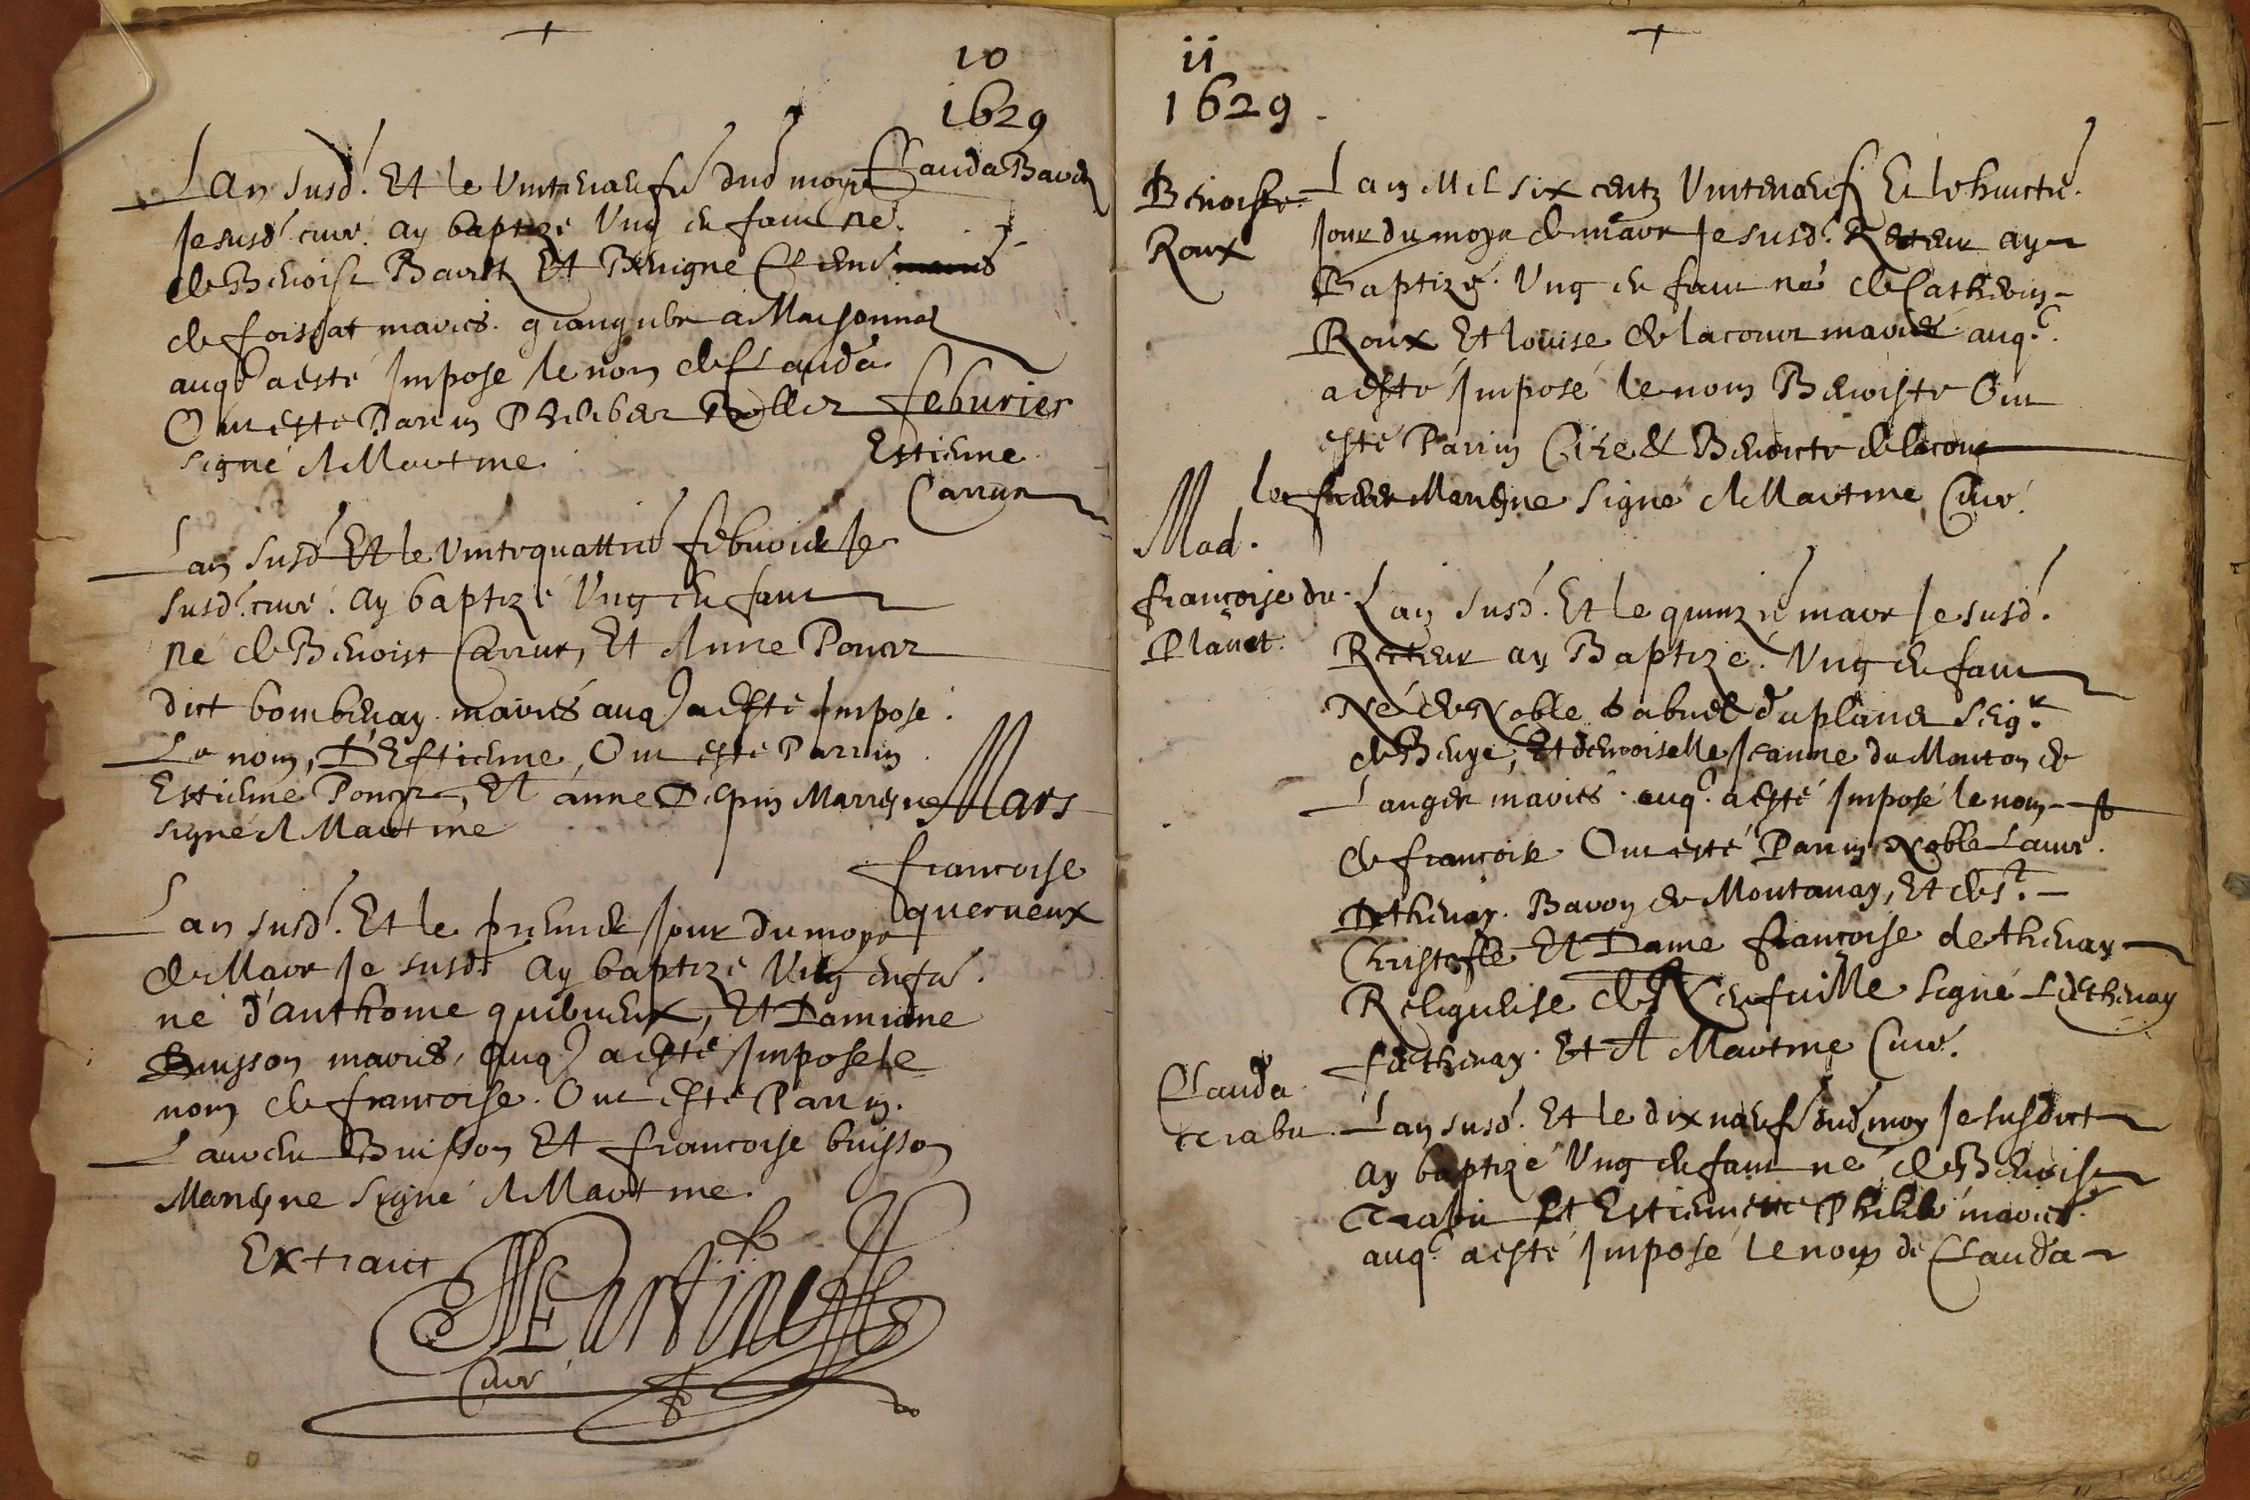 10
1629
Clauda Baudet
Lan susd. Et le vinteneufe dud moys
Je susd. cure. ay baptizé Ung enfant né.
de Benoist Baudet Et Benigne Clerc
de foissiat mariés. grangube a Marsonnat
auql. a esté Imposé le nom de Clauda
Ont esté Parrin Philiber
signé A Martine
feburier
Estienne
Carrur
Lan susd Et le vintequattre febvrier Je
susd. cure. ay baptizé Ung enfant
né de Benoist Carrur, Et Anne Poncet
dict bombenay. mariés auql a esté Imposé.
Le nom, D'Estienne, Ont esté Parrin
Estienne Poncet, Et anne D'espin Marregne
signé A Martine
Mars
francoise
querueux
Lan susd. Et le premier Jour du moys
de Mars Je susdt ay baptizé Ung enfan.
né d'anthoine quibueux, Et Damiane
Buisson mariés, auql a esté Imposé le
nom de francoise. Ont esté Parrin.
Laurens Buisson Et francoise buisson
Maregne signé A Martine.
Extraict
Martine
Cure
11
1629.
Benoiste
Roux
Lan Mil six centz Vinteneuf Et le huicte.
Jour du moys de mars Je susd. Recteur ay
Baptizé. Ung enfant né de Catherin
Roux Et louise de lacour mariés auq.
a esté Imposé le nom Benoiste Ont
esté Parrin Benoicte de lacour
Maregne signé A Martine Cure.
Mad.
françoise du
Planet.
Lan susd. Et le quinzie mars Je susd.
Recteur ay Baptizé. Ung enfant
Né de Noble Gabriel du planet Seigr
de Beuye, Et demoiselle Jeanne du Mouton de
Langer mariés. auq. a esté Imposé le nom
de francoise Ont esté Parrin Noble Laure.
Dethenay. Baron de Montanay, Et de St.
Christofle Et Dame francoise dethenay
Religieuse de Neufuille signé L dethenay
f dethenay. Et A Martine Cure.
Clauda
trabu.
Lan susd. Et le dix neufe dud moy Je susdict
ay baptizé Ung enfant né de Benoist
Trabu Et Estiennette Philibe mariés
auq. a esté Imposé le nom de Clauda